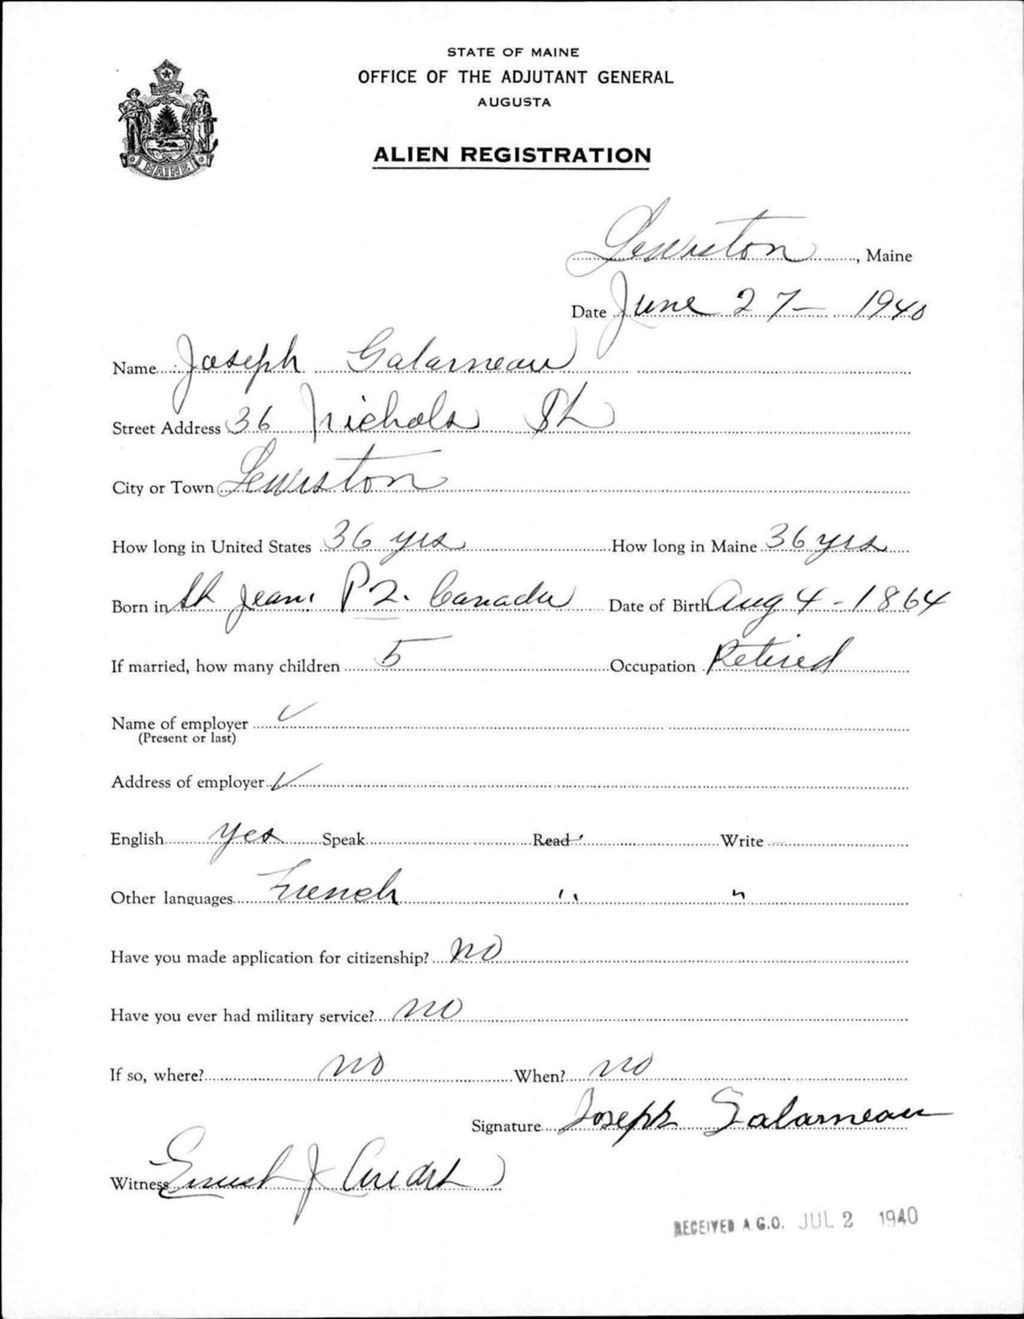 STATE OF MAINE
OFFICE OF THE ADJUTANT GENERAL
AUGUSTA
ALIEN REGISTRATION
MAINE
Lewiston, Maine
Date June 27 - 1940
Name Joseph Galarneau
Street Address 36 Nichols St
City or Town Lewiston
How long in United States 36 yrs How long in Maine 36 yrs
Born in St Jean P2. Canada Date of Birth Aug 4 - 1864
If married, how many children 5 Occupation Retired
Name of employer ✓
(Present or last)
Address of employer ✓
English yes Speak Read Write
Other languages French " "
Have you made application for citizenship? no
Have you ever had military service? no
If so, where? no When? no
Signature Joseph Galarneau
Witness Ernest J
RECEIVED A.G.O. JUL 2 1940